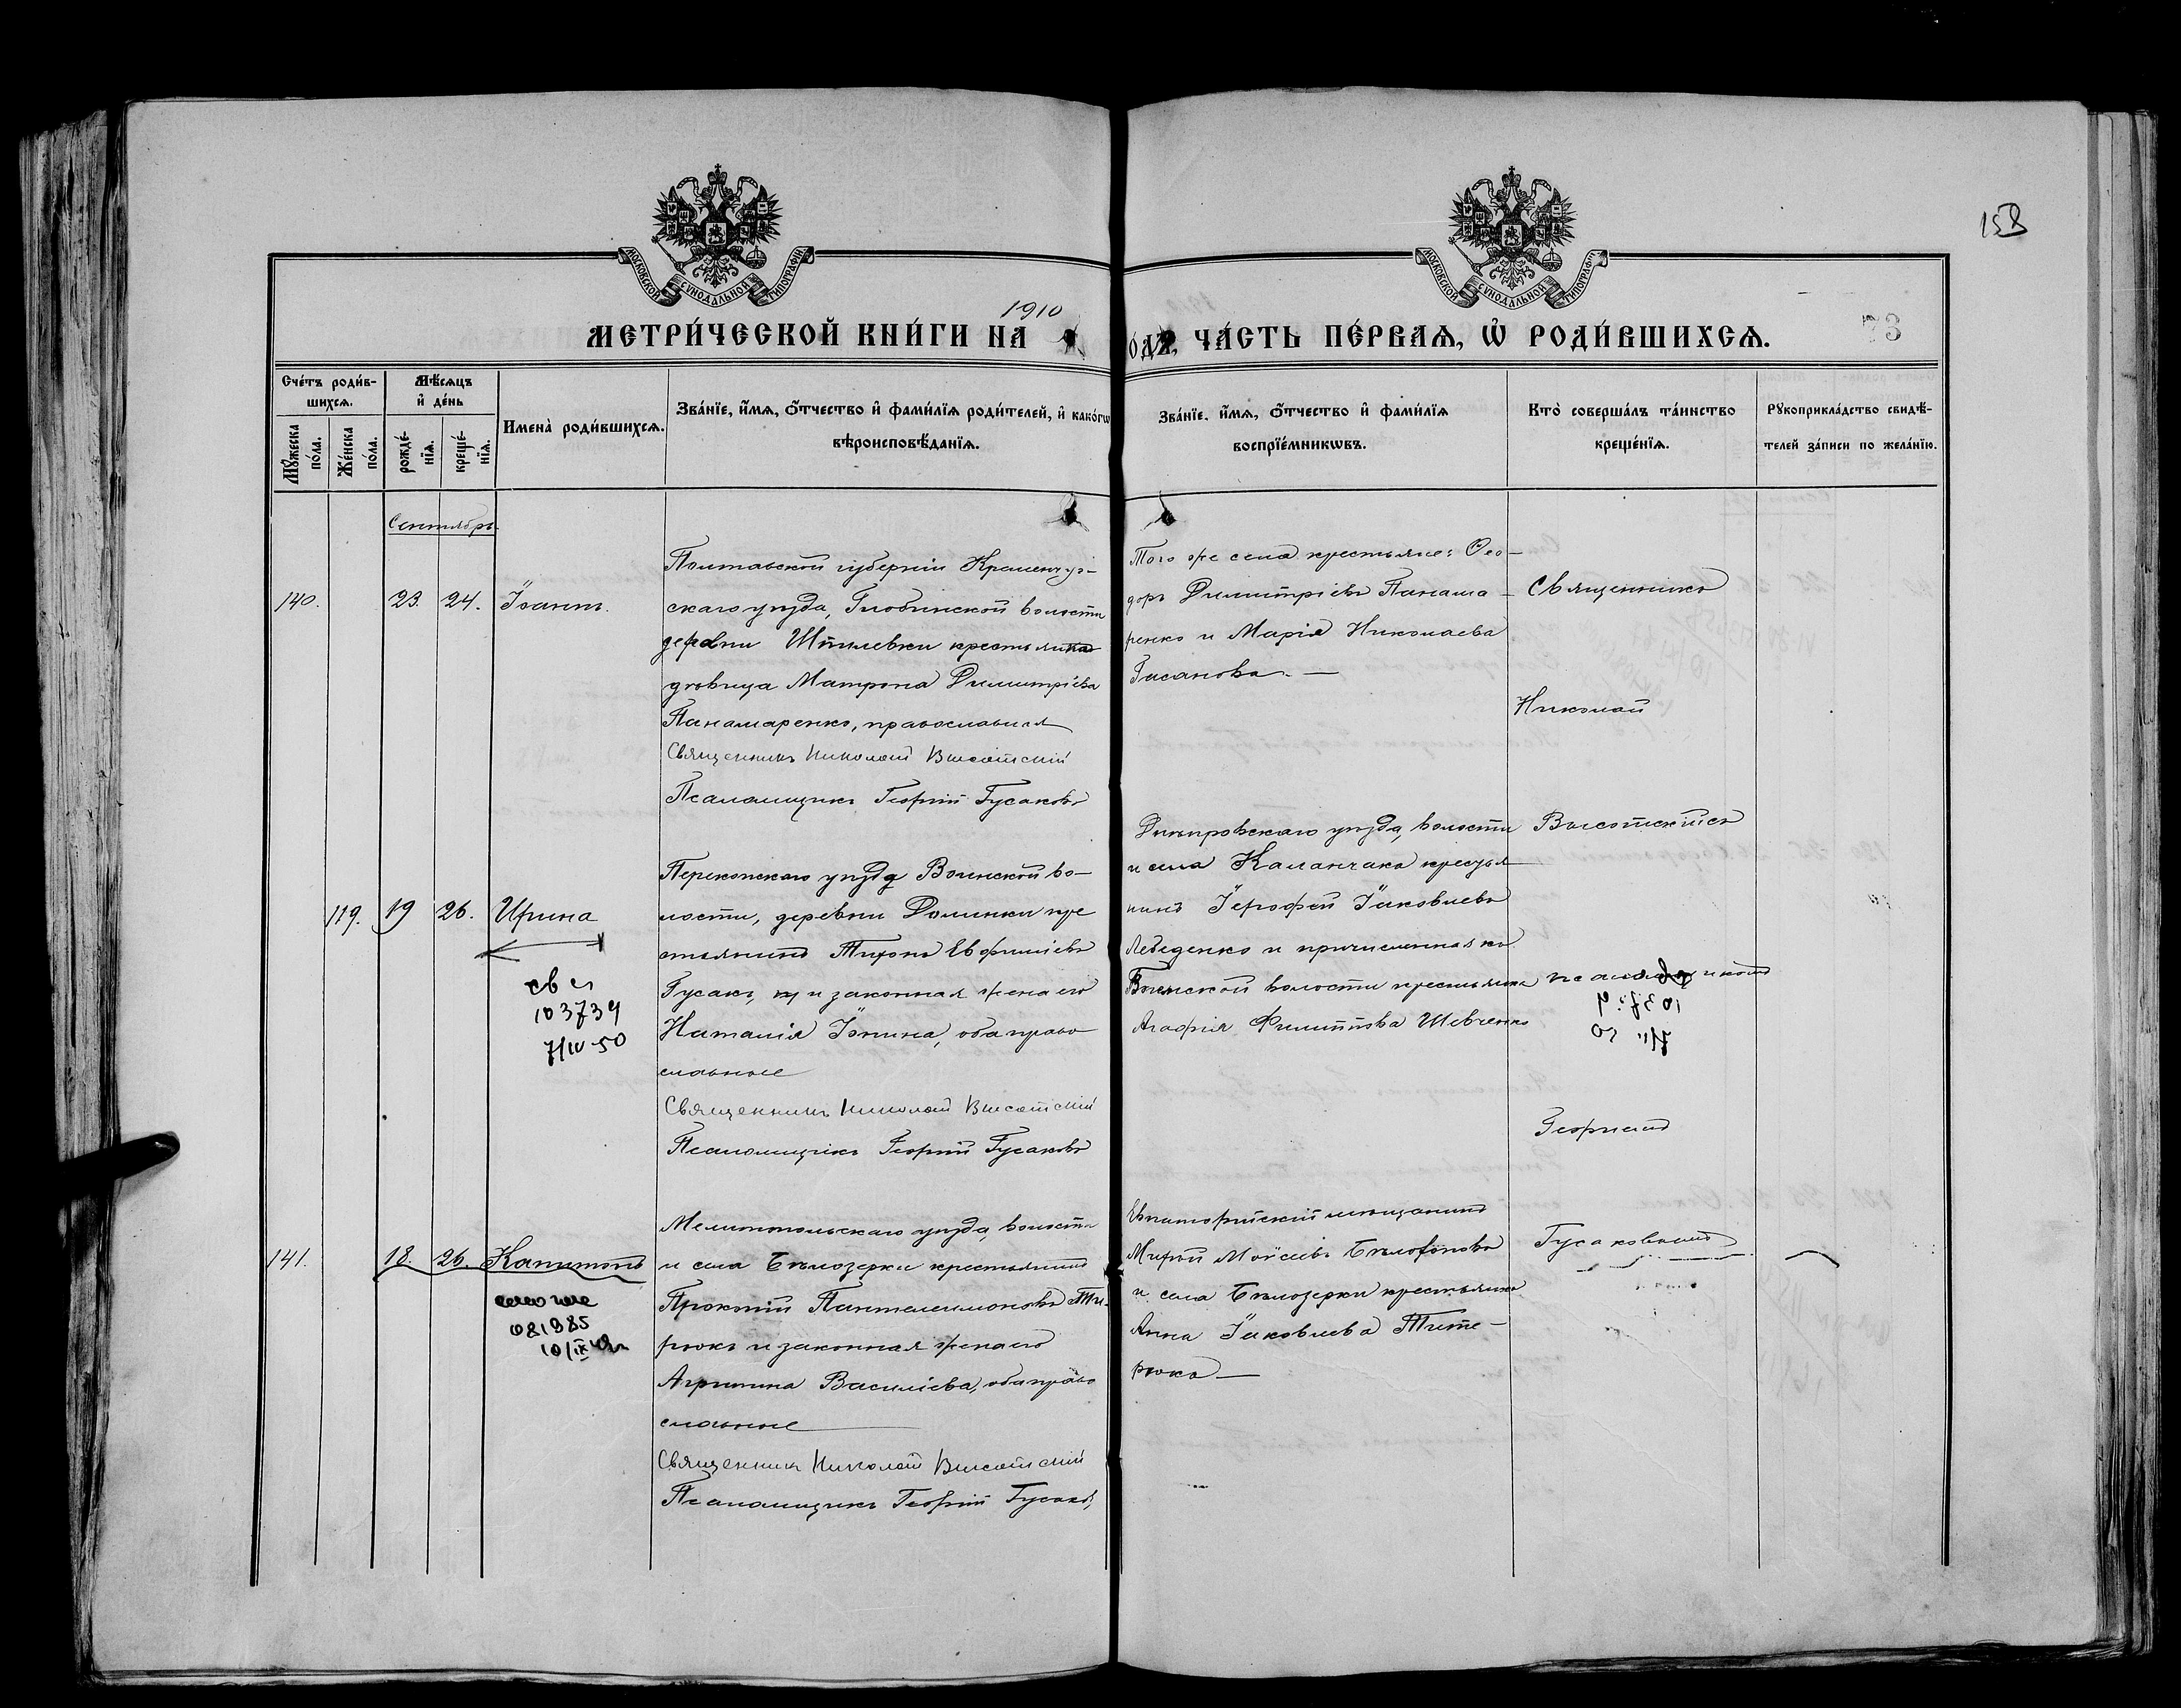 158
МОСКОВСКОЙ СУНОДАЛЬНОЙ ТИПОГРАФІИ
МОСКОВСКОЙ СУНОДАЛЬНОЙ ТИПОГРАФІИ
1910
МЕТРИ́ЧЕСКОЙ КНИ́ГИ НА
ОДЪ, ЧА́СТЬ ПЕ́РВАѦ, Ѡ҆ РОДИ́ВШИХСѦ.
73
Сче́тъ роди́в-
шихсѧ.
Мꙋ́жеска по́ла.
Же́нска по́ла.
Мѣ́сѧцъ
и҆ де́нь
рожде́-
нїѧ.
креще́-
нїѧ.
И҆мена̀ роди́вшихсѧ.
Зва́нїе, и҆́мѧ, ѻ҆́тчество и҆ фами́лїѧ роди́телей, и҆ како́гѡ
вѣроисповѣ́данїѧ.
Зва́нїе, и҆́мѧ, ѻ҆́тчество и҆ фами́лїѧ
воспрїе́мникѡвъ.
Кто̀ соверша́лъ та́инство
креще́нїѧ.
Рꙋкоприкла́дство свидѣ́-
телей за́писи по жела́нїю.
Сентябрь
140.
23. 24. Іоаннъ.
Полтавской губерніи Кременчуг-
скаго уѣзда, Глобинской волости
деревни крестьянка
вдовица Матрона Димитріева
Панамаренко, православная
Священникъ Николай Высотскій
Псаломщикъ Георгій Гусаковъ
Того же села крестьяне: Ѳео-
доръ Димитріевъ Панама-
ренко и Марія Николаева
Священникъ
Николай
119. 19 26. Ирина
св
103739
7/IV 50
Перекопскаго уѣзда Воинской во-
лости, деревни Долинки кре
стьянинъ Тихонъ Евфиміевъ
Гусакъ, и законная жена его
Наталія Іонина, оба право
славные
Священникъ Николай Высотскій
Псаломщикъ Георгій Гусаковъ
Днѣпровскаго уѣзда, волости
и села Каланчака крестья
нинъ Іерофей Іаковлевъ
Лебеденко и причисленная къ
Воинской волости крестьянка
Агафія Филиппова Шевченко
Высотскій съ
псаломщикомъ
Георгіемъ
141. 18. 26. Капитонъ
081985
10/IX
Мелитопольскаго уѣзда, волости
и села Бѣлозерки крестьянинъ
Прокопій Пантелеимоновъ Ти-
рюкъ и законная жена его
Агрипина Василіева, оба право
славные
Священникъ Николай Высотскій
Псаломщикъ Георгій Гусаковъ
Евпаторійскій мѣщанинъ
Моисеевъ
и села Бѣлозерки крестьянка
Анна Іаковлева Тите-
рюка
Гусаковымъ